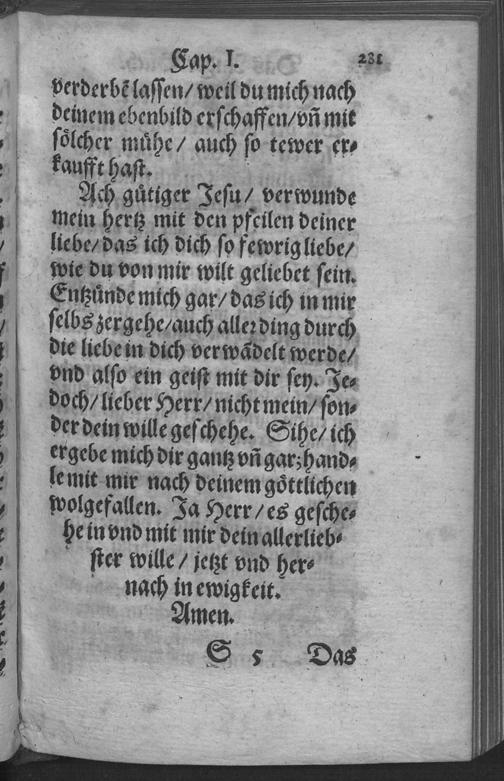 Cap. I. 231
verderbẽ lassen/ weil du mich nach
deinem ebenbild erschaffen/vñ mit
sölcher mühe/ auch so tewer er-
kaufft hast.
Ach gütiger Jesu/ verwunde
mein hertz mit den pfeilen deiner
liebe/das ich dich so fewrig liebe/
wie du von mir wilt geliebet sein.
Entzünde mich gar/das ich in mir
selbs zergehe/auch aller ding durch
die liebe in dich verwãdelt werde/
vnd also ein geist mit dir sey. Je-
doch/lieber Herr/nicht mein/son-
der dein wille geschehe. Sihe/ich
ergebe mich dir gantz vñ gar; hand-
le mit mir nach deinem göttlichen
wolgefallen. Ja Herr/es gesche-
he in vnd mit mir dein allerlieb-
ster wille/ jetzt vnd her-
nach in ewigkeit.
Amen.
S 5 Das